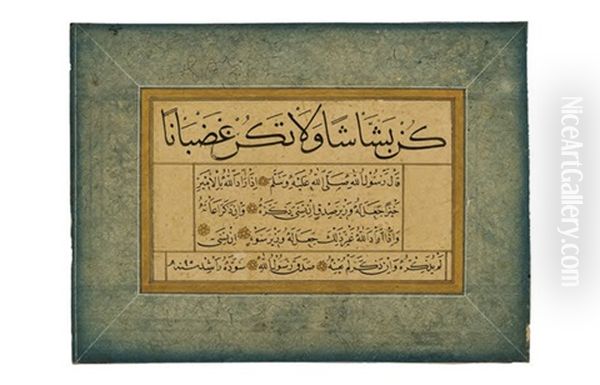 كن بشاشا ولا تكن غضبانا
قال رسول الله صلى الله عليه وسلم اذا اراد الله بالامير
خيرا جعل له وزير صدق ان نسى ذكره وان ذكر اعانه
واذا اراد الله غير ذلك جعل له وزير سوء ان نسى
لم يذكره وان ذكر لم يعنه صدق رسول الله سوده راشد سنة
NiceArtGallery.com